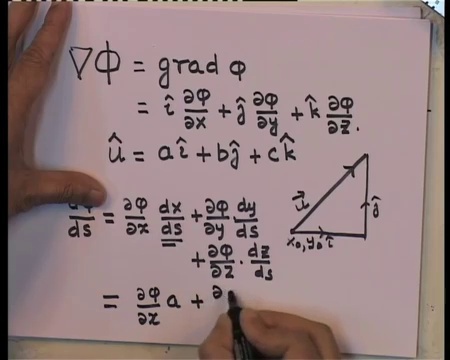 ∇Φ = grad φ
= î ∂φ/∂x + ĵ ∂φ/∂y + k̂ ∂φ/∂z.
û = aî + bĵ + ck̂
dφ/ds = ∂φ/∂x dx/ds + ∂φ/∂y dy/ds
+ ∂φ/∂z . dz/ds
= ∂φ/∂x a + ∂
u⃗
ĵ
x₀, y₀ î